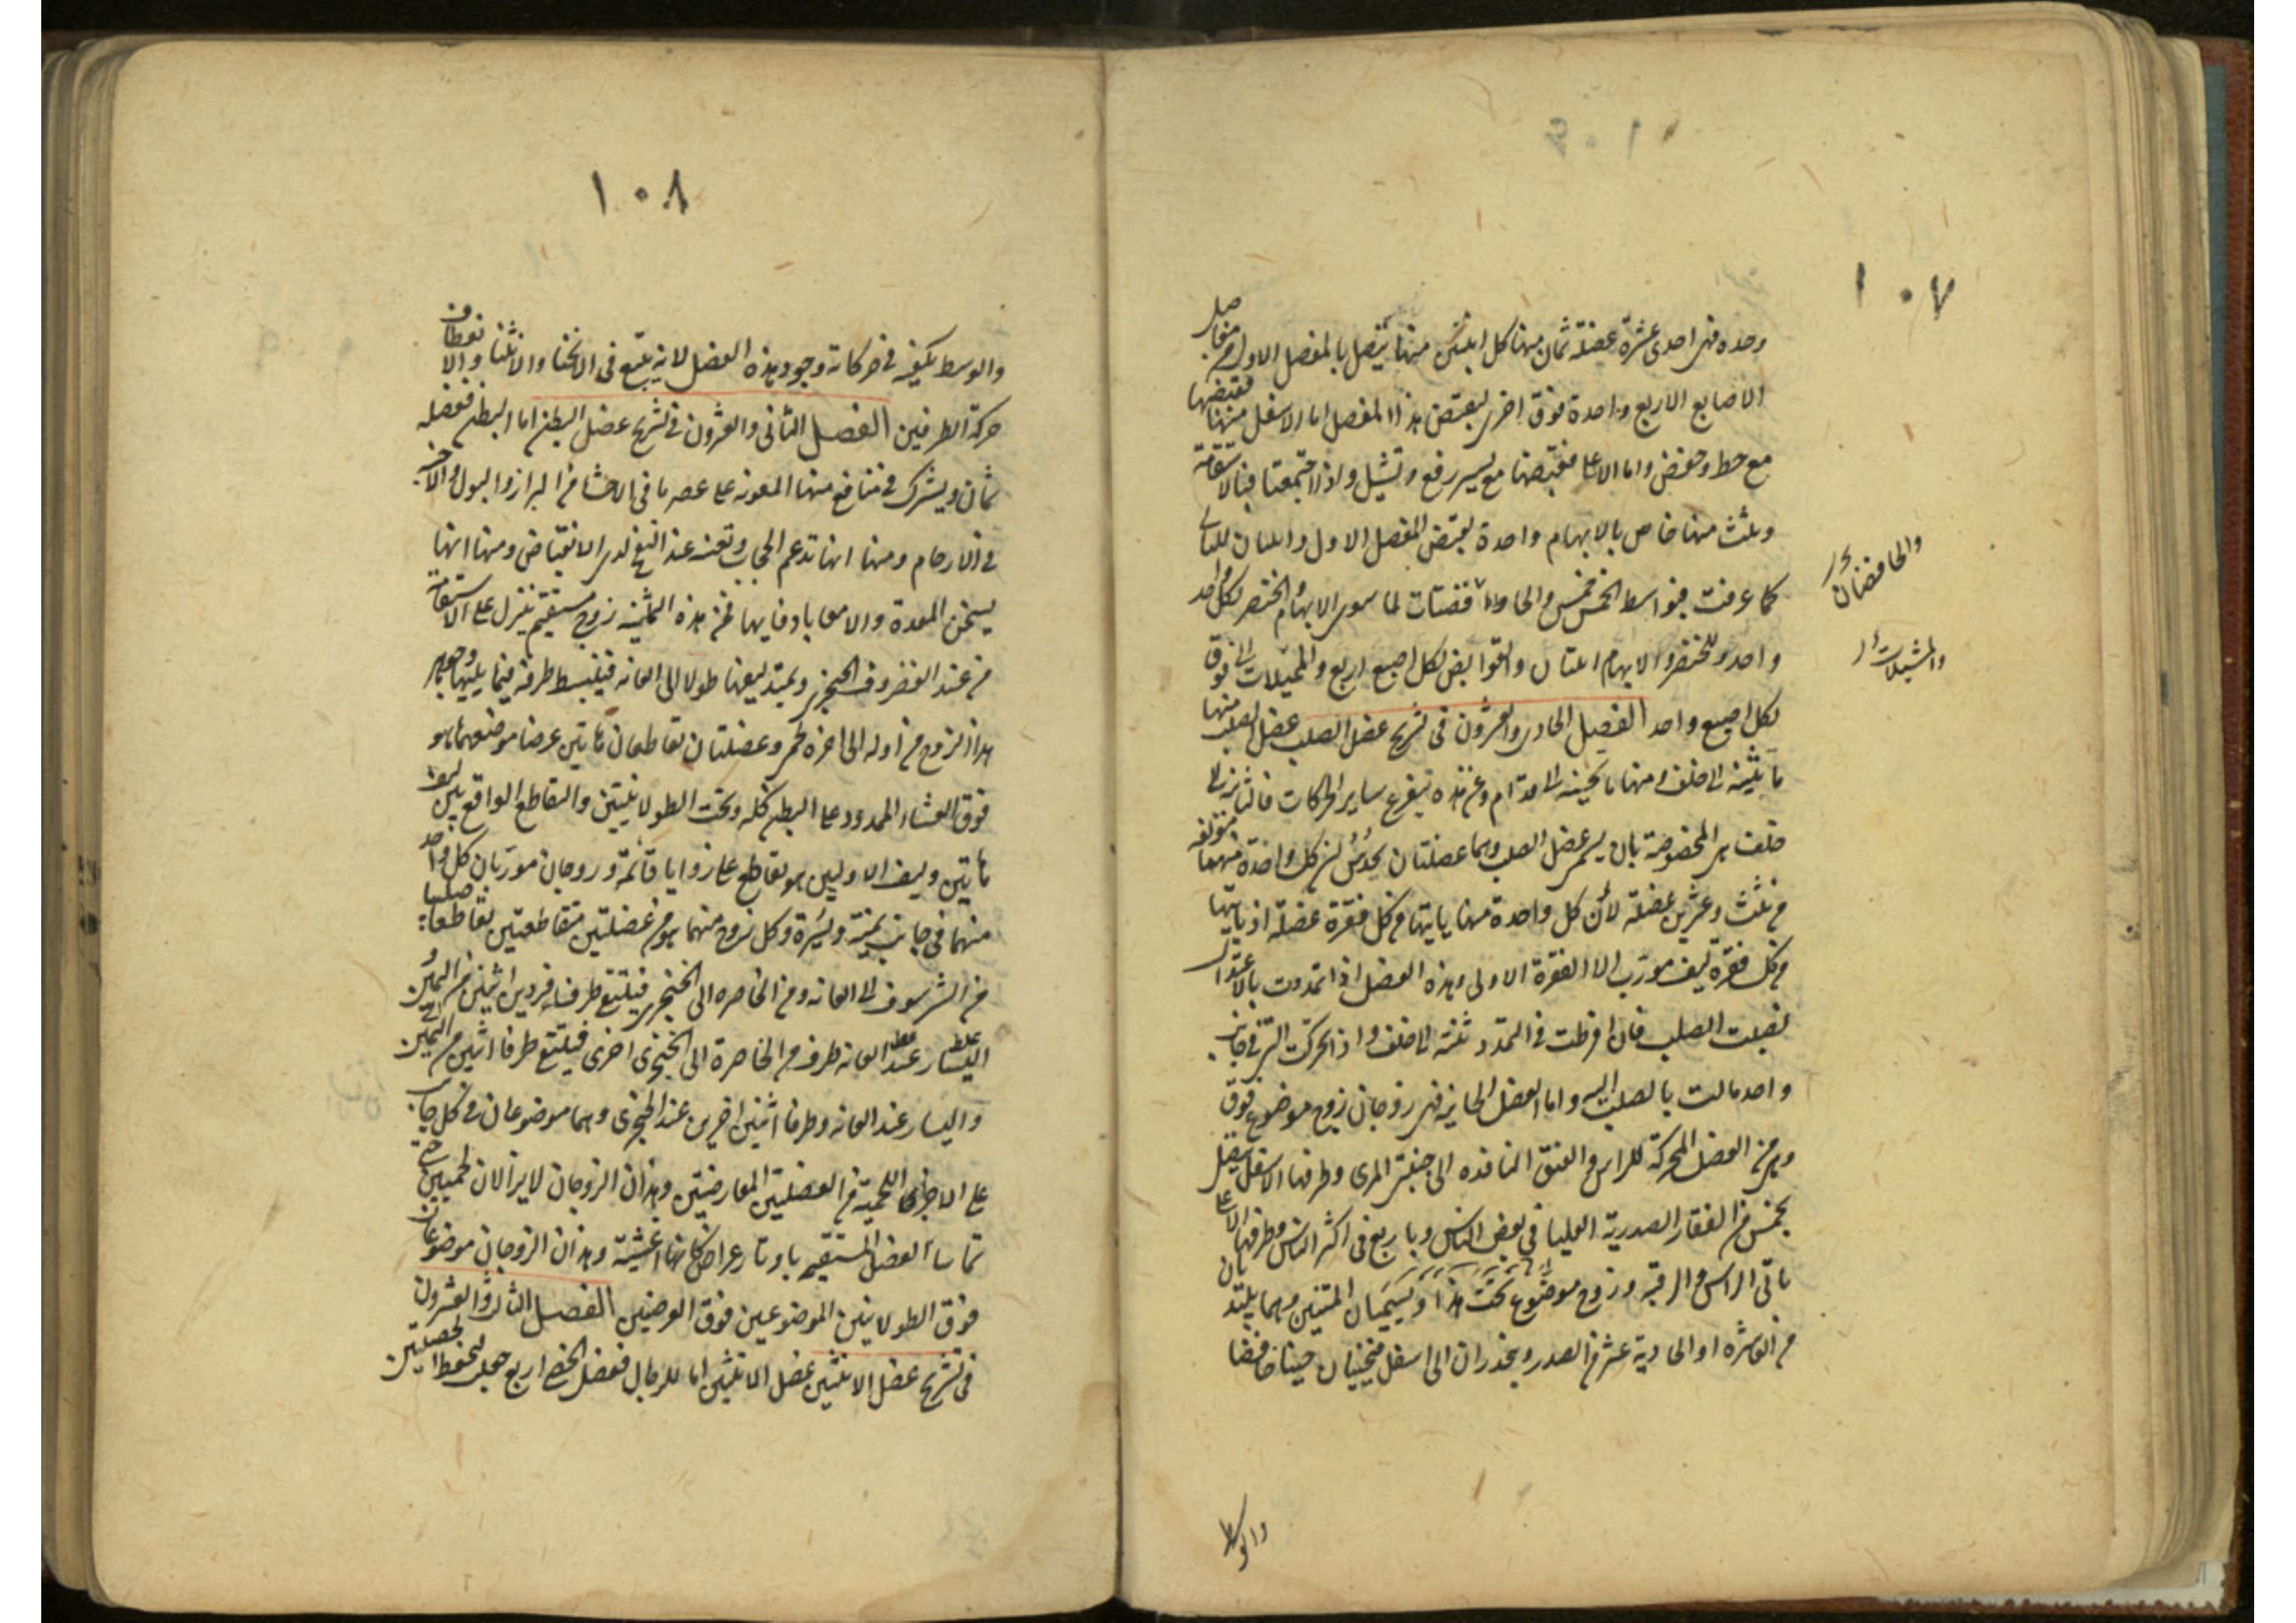 ١٠٧
وحده فهى احدى عشرة عضلة ثمان منها كل اثنتين منها يتصل بالمفصل الاول من مفاصل
الاصابع الاربع واحدة فوق اخرى ليقبض هذا المفصل اما الاسفل منها فقبضها
مع حط وخفض واما الاعلا فقبضها مع يسير رفع وتشيل واذا اجتمعتا فبالاستقامة
وثلث منها خاص بالابهام واحدة لقبض المفصل الاول واثنتان للثانى
كما عرفت فبواسط الخمس خمس والحافضات لما سوى الابهام والخنصر لكل واحد
واحد وللخنصر والابهام اثنتان والقوابض لكل اصبع اربع والمميلات الى فوق
لكل اصبع واحد الفصل الحادى والعشرون فى تشريح عضل الصلب عضل الصلب منها
ما يثنيه الى خلف ومنها ما يحنيه الى قدام وعن هذه يتفرع ساير الحركات فالثانية الى
خلف هى المخصوصة بان يسمى عضل الصلب وهما عضلتان يحدس ان كل واحدة منهما مؤلفه
من ثلث وعشرين عضلة لان كل واحدة منها ياتيها من كل فقرة عضلة اذ ياتيها
من كل فقرة ليف مورب الا الفقرة الاولى وهذه العضل اذا تمددت بالاعتدال
نصبت الصلب فان افرطت فى التمدد ثنته الى خلف واذا تحركت التى فى جانب
واحد مالت بالصلب اليه واما العضل الحانية فهى زوجان زوج موضوع فوق
وهى من العضل المحركة للراس والعنق النافذه الى جنبتى المرى وطرفها الاسفل يتصل
بخمس من الفقار الصدرية العليا فى بعض الناس وباربع فى اكثر الناس وطرفها الاعلا
ياتى الراس والرقبه وزوج موضوع تحت هذا ويسميان المتنين وهما يبتديان
من العاشره او الحادية عشر من الصدر وينحدران الى اسفل فيحنيان حنيا خافضا
والحافضات
والمشيلات
والوسط
١٠٨
والوسط يكفيه فى حركاته وجود هذه العضل لانه يتبع فى الانحنا والانثنا والانعطاف
حركة الطرفين الفصل الثانى والعشرون فى تشريح عضل البطن اما البطن فعضله
ثمان ويشترك فى منافع منها المعونه على عصر ما فى الاحشا من البراز والبول والاجنه
فى الارحام ومنها انها تدعم الحجاب وتعينه عند النفخ لدى الانقباض ومنها انها
يسخن المعدة والامعا بادفايها فمن هذه الثمنيه زوج مستقيم ينزل على الاستقامة
من عند الغضروف الخنجرى ويمتد ليفها طولا الى العانه فينبسط طرفه فيما يليها وجوهر
هذا الزوج من اوله الى اخره لحمى وعضلتان تقاطعان هاتين عرضا موضعهما هو
فوق الغشاء الممدود على البطن كله وتحت الطولانيتين والتقاطع الواقع بين ليف
هاتين وليف الاوليين هو تقاطع على زوايا قائمة وزوجان موربان كل واحد
منهما فى جانب يمنة ويسرة وكل زوج منهما هو من عضلتين متقاطعتين تقاطعا صليبيا
من الشرسوف الى العانه ومن الخاصره الى الخنجرى فيلتقى طرفا فردين اثنين من اليمين
اليسار عند العانه طرف من الخاصرة الى الخنجرى اخرى فيلتقى طرفا اثنين من اليمين
واليسار عند العانه وطرفا اثنين اخرين عند الخنجرى وهما موضوعان فى كل جانب
على الاجزا اللحمية من العضلتين المعارضتين وهذان الزوجان لايزالان لحميين حتى
تماسا العضل المستقيم باوتار عراض كانها اغشية وهذان الزوجان موضوعان
فوق الطولانيتين الموضوعين فوق العرضيتين الفصل الثالث والعشرون
فى تشريح عضل الانثيين عضل الانثيين اما للرجال فعضل الخصى اربع جعلت لتحفظ الخصيتين